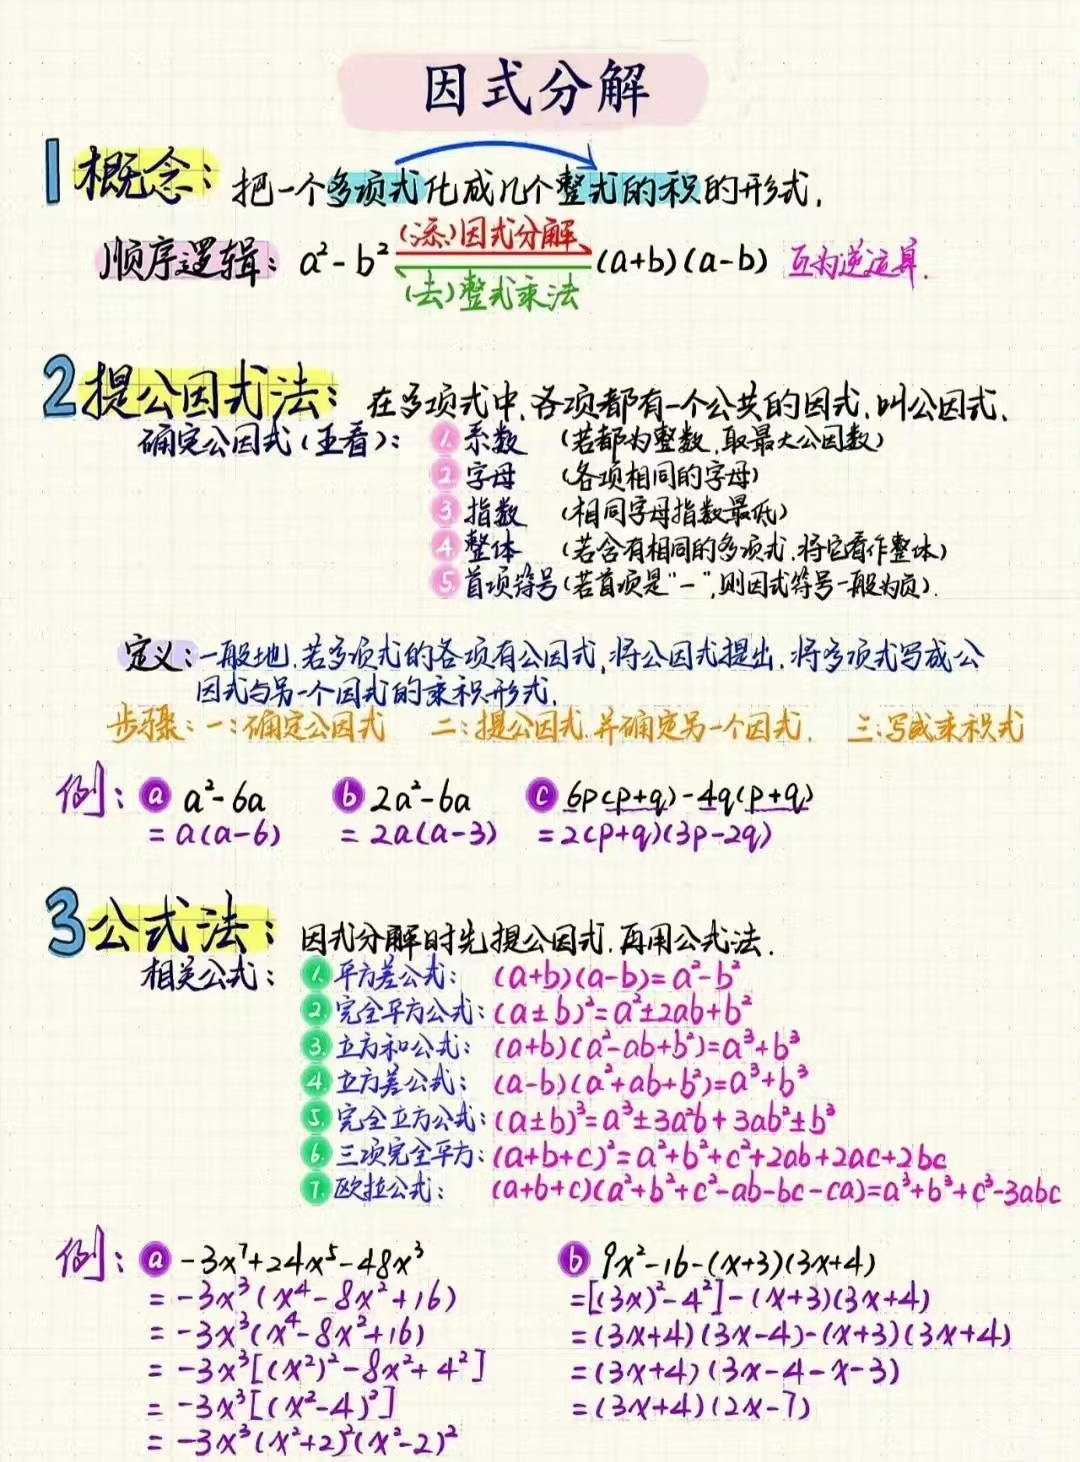 因式分解
1 概念: 把一个多项式化成几个整式的积的形式.
顺序逻辑: a²-b² (添)因式分解 (去)整式乘法 (a+b)(a-b) 互为逆运算.
2 提公因式法: 在多项式中,各项都有一个公共的因式,叫公因式.
确定公因式(主看): 1. 系数 (若都为整数,取最大公因数)
2 字母 (各项相同的字母)
3 指数 (相同字母指数最低)
4 整体 (若含有相同的多项式,将它看作整体)
5. 首项符号(若首项是"-",则因式符号一般为负).
定义:一般地,若多项式的各项有公因式,将公因式提出,将多项式写成公
因式与另一个因式的乘积形式.
步骤:一:确定公因式 二:提公因式并确定另一个因式. 三:写成乘积式
例: a a²-6a b 2a²-6a c 6p(p+q)-4q(p+q)
=a(a-6) =2a(a-3) =2(p+q)(3p-2q)
3 公式法: 因式分解时先提公因式.再用公式法.
相关公式: 1. 平方差公式: (a+b)(a-b)=a²-b²
2. 完全平方公式: (a±b)²=a²±2ab+b²
3. 立方和公式: (a+b)(a²-ab+b²)=a³+b³
4. 立方差公式: (a-b)(a²+ab+b²)=a³+b³
5. 完全立方公式: (a±b)³=a³±3a²b+3ab²±b³
6. 三项完全平方: (a+b+c)²=a²+b²+c²+2ab+2ac+2bc
7. 欧拉公式: (a+b+c)(a²+b²+c²-ab-bc-ca)=a³+b³+c³-3abc
例: a -3x⁷+24x⁵-48x³
=-3x³(x⁴-8x²+16)
=-3x³(x⁴-8x²+16)
=-3x³[(x²)²-8x²+4²]
=-3x³[(x²-4)²]
=-3x³(x+2)²(x-2)²
b 9x²-16-(x+3)(3x+4)
=[(3x)²-4²]-(x+3)(3x+4)
=(3x+4)(3x-4)-(x+3)(3x+4)
=(3x+4)(3x-4-x-3)
=(3x+4)(2x-7)